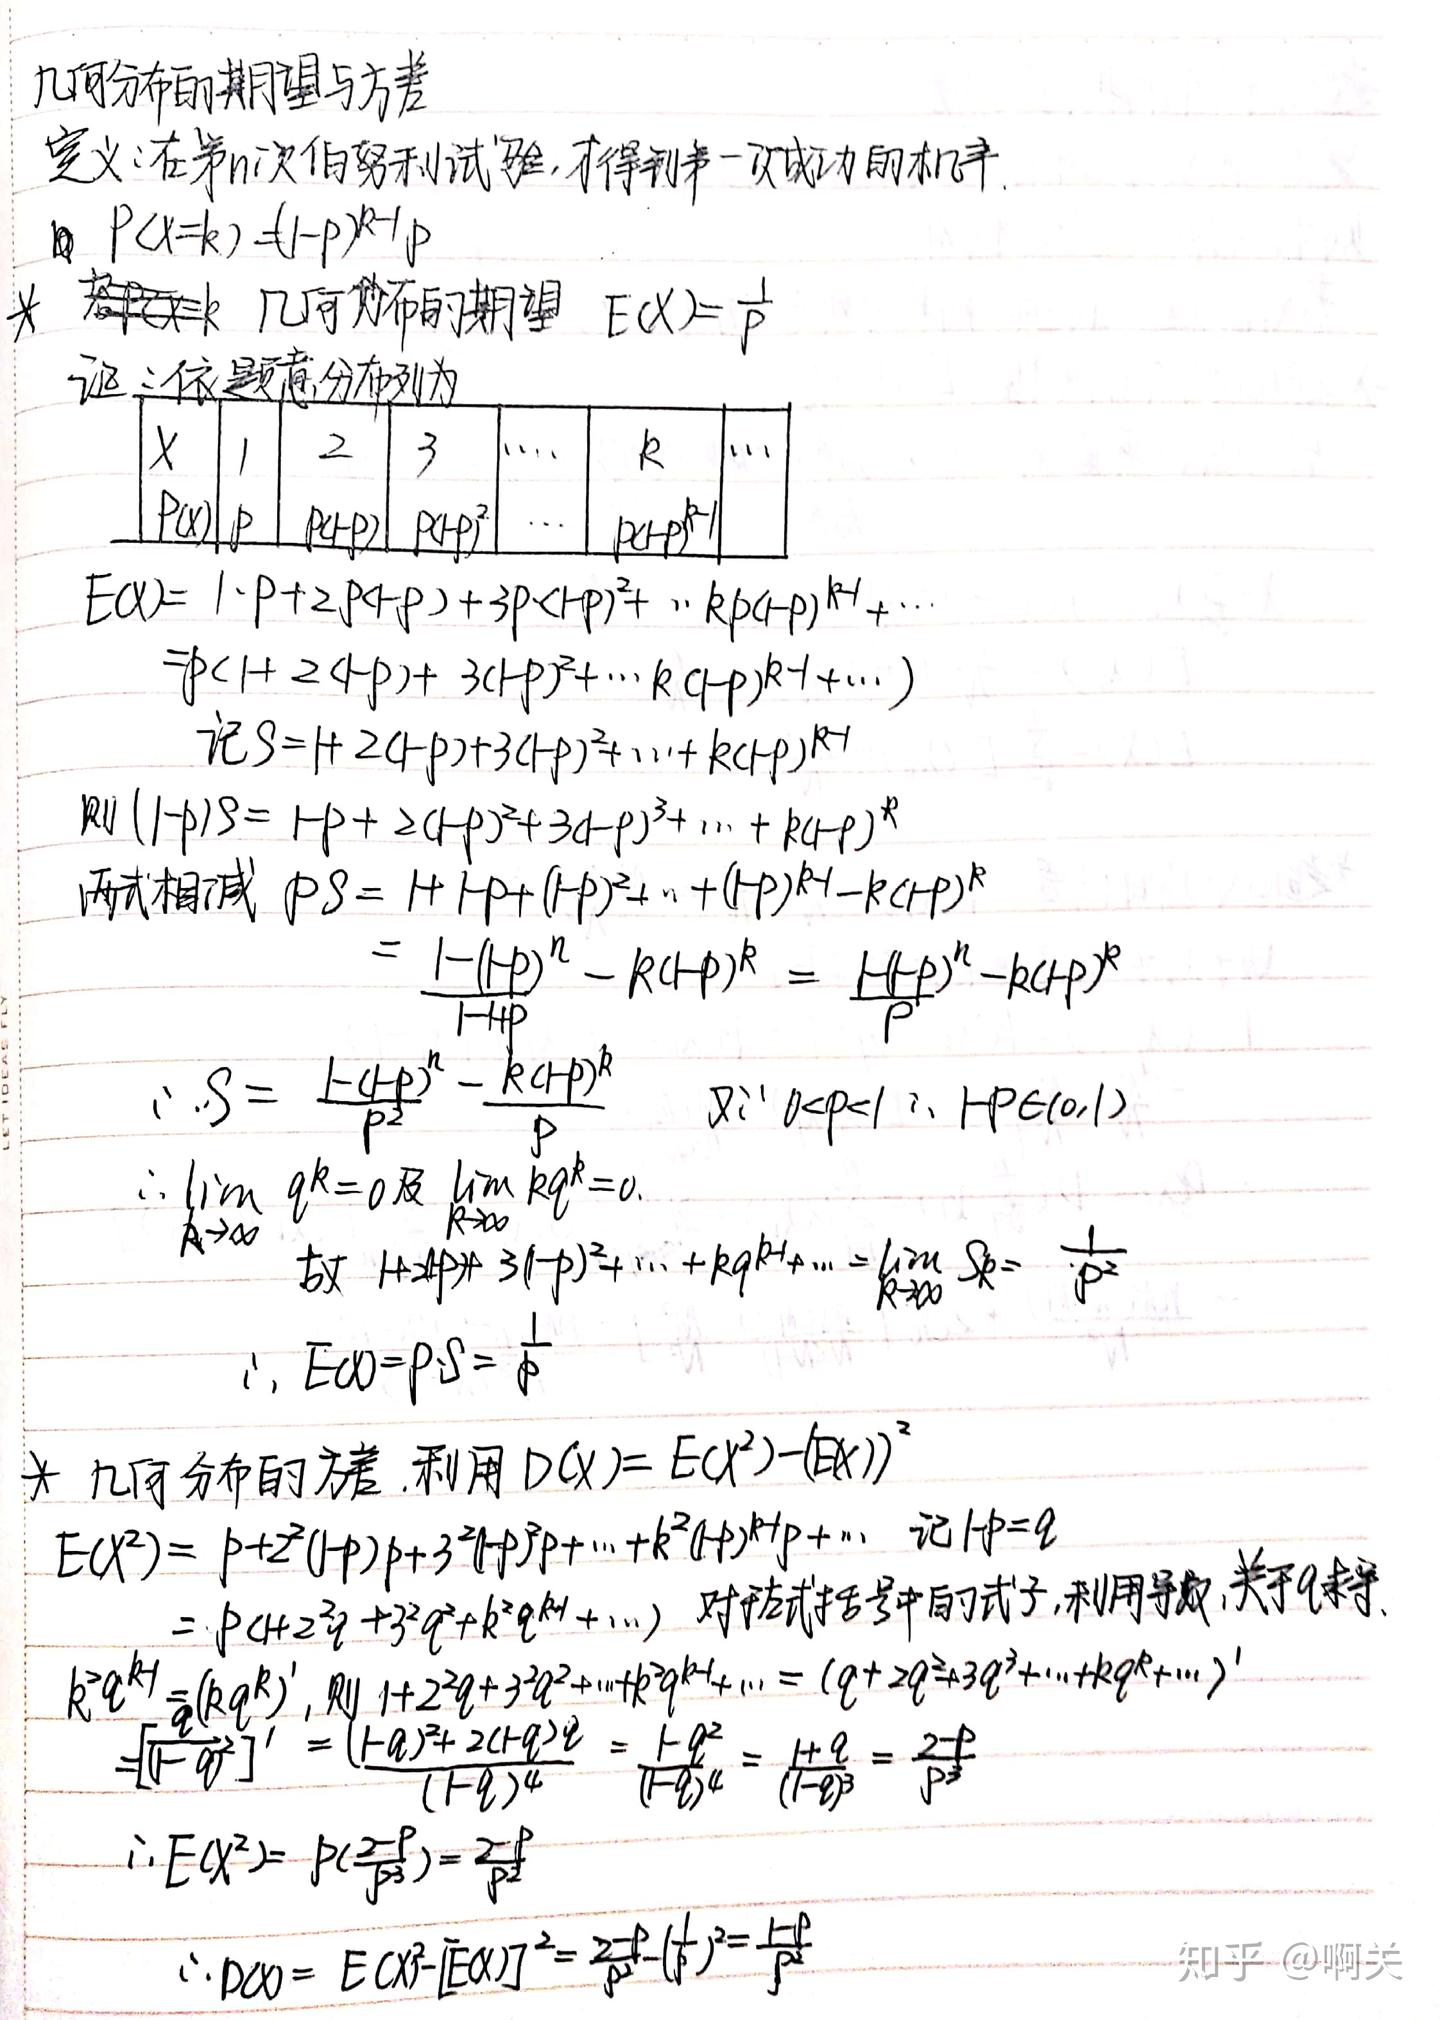 几何分布的期望与方差
定义:在第n次伯努利试验,才得到第一次成功的机率.
P(X=k)=(1-p)^{k-1}p
* 若P(X=k 几何分布的期望 E(X)=\frac{1}{p}
证:依题意,分布列为
X 1 2 3 .... k ...
P(X) p p(1-p) p(1-p)^2 ... p(1-p)^{k-1}
E(X)= 1·p+2p(1-p)+3p·(1-p)^2+ ··kp(1-p)^{k-1}+···
=p(1+2(1-p)+3(1-p)^2+···k(1-p)^{k-1}+···)
记S=1+2(1-p)+3(1-p)^2+···+k(1-p)^{k-1}
则(1-p)S=1-p+2(1-p)^2+3(1-p)^3+···+k(1-p)^k
两式相减 pS=1+1-p+(1-p)^2+··+(1-p)^{k-1}-k(1-p)^k
=\frac{1-(1-p)^n}{1-1+p}-k(1-p)^k=\frac{1-(1-p)^n}{p}-k(1-p)^k
∴S=\frac{1-(1-p)^n}{p^2}-\frac{k(1-p)^k}{p} 又∵0<p<1∴1-p∈(0,1)
∴\lim_{k→∞} q^k=0及\lim_{k→∞} kq^k=0.
故 1+2(1-p)+3(1-p)^2+···+kq^{k-1}+···=\lim_{k→∞} S_k=\frac{1}{p^2}
∴E(X)=p·S=\frac{1}{p}
* 几何分布的方差.利用D(X)=E(X^2)-(E(X))^2
E(X^2)=p+2^2(1-p)p+3^2(1-p)^2p+···+k^2(1-p)^{k-1}p+··· 记1-p=q
=p(1+2^2q+3^2q^2+k^2q^{k-1}+···) 对于左式括号中的式子,利用导数,关于q求导.
k^2q^{k-1}=(kq^k)',则1+2^2q+3^2q^2+···+k^2q^{k-1}+···=(q+2q^2+3q^3+···+kq^k+···)'
=[\frac{q}{(1-q)^2}]'=\frac{(1-q)^2+2(1-q)q}{(1-q)^4}=\frac{1-q^2}{(1-q)^4}=\frac{1+q}{(1-q)^3}=\frac{2-p}{p^3}
∴E(X^2)=p(\frac{2-p}{p^3})=\frac{2-p}{p^2}
∴D(X)=E(X^2-[E(X)]^2=\frac{2-p}{p^2}-(\frac{1}{p})^2=\frac{1-p}{p^2}
知乎 @啊关
LET IDEAS FLY